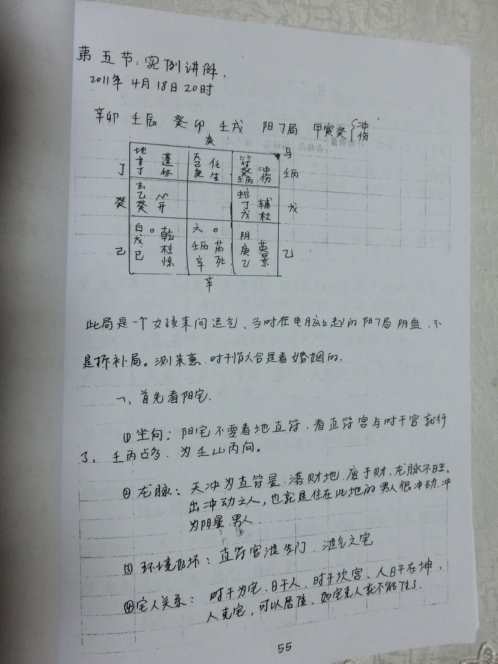 第五节:实例讲解,
2011年4月18日20时
辛卯 壬辰 癸卯 壬戌 阳7局 甲寅癸 冲伤
庚
地 蓬 任 生 冲 伤 马
丁 丁 休 庚 壬丙
癸 乙 癸 开 丁 戊 辅 杜 戊
己 白 戊 己 乾 柱 惊 六 壬丙 辛 芮 死 阴 庚 乙 英 景 乙
辛
此局是一个女孩来问运气、当时在电脑上起的阳7局阴盘、不
是拆补局。测来意、时干落六合是看婚姻的.
一、首先看阳宅.
①坐向:阳宅不要看地直符、看直符宫与时干宫就行
了。壬丙占多、为壬山丙向。
②龙脉:天冲为直符星 落财地 库于财、龙脉不旺.
出冲动之人,也就是住在此地的男人很冲动.冲
为阳星 男人
③环境好坏:直符宫 生门、进气之宅
④宅人关系:时干为宅、日干人、时干坎宫、人日干在坤、
人克宅,可以居住、如宅克人就不能住了.
55